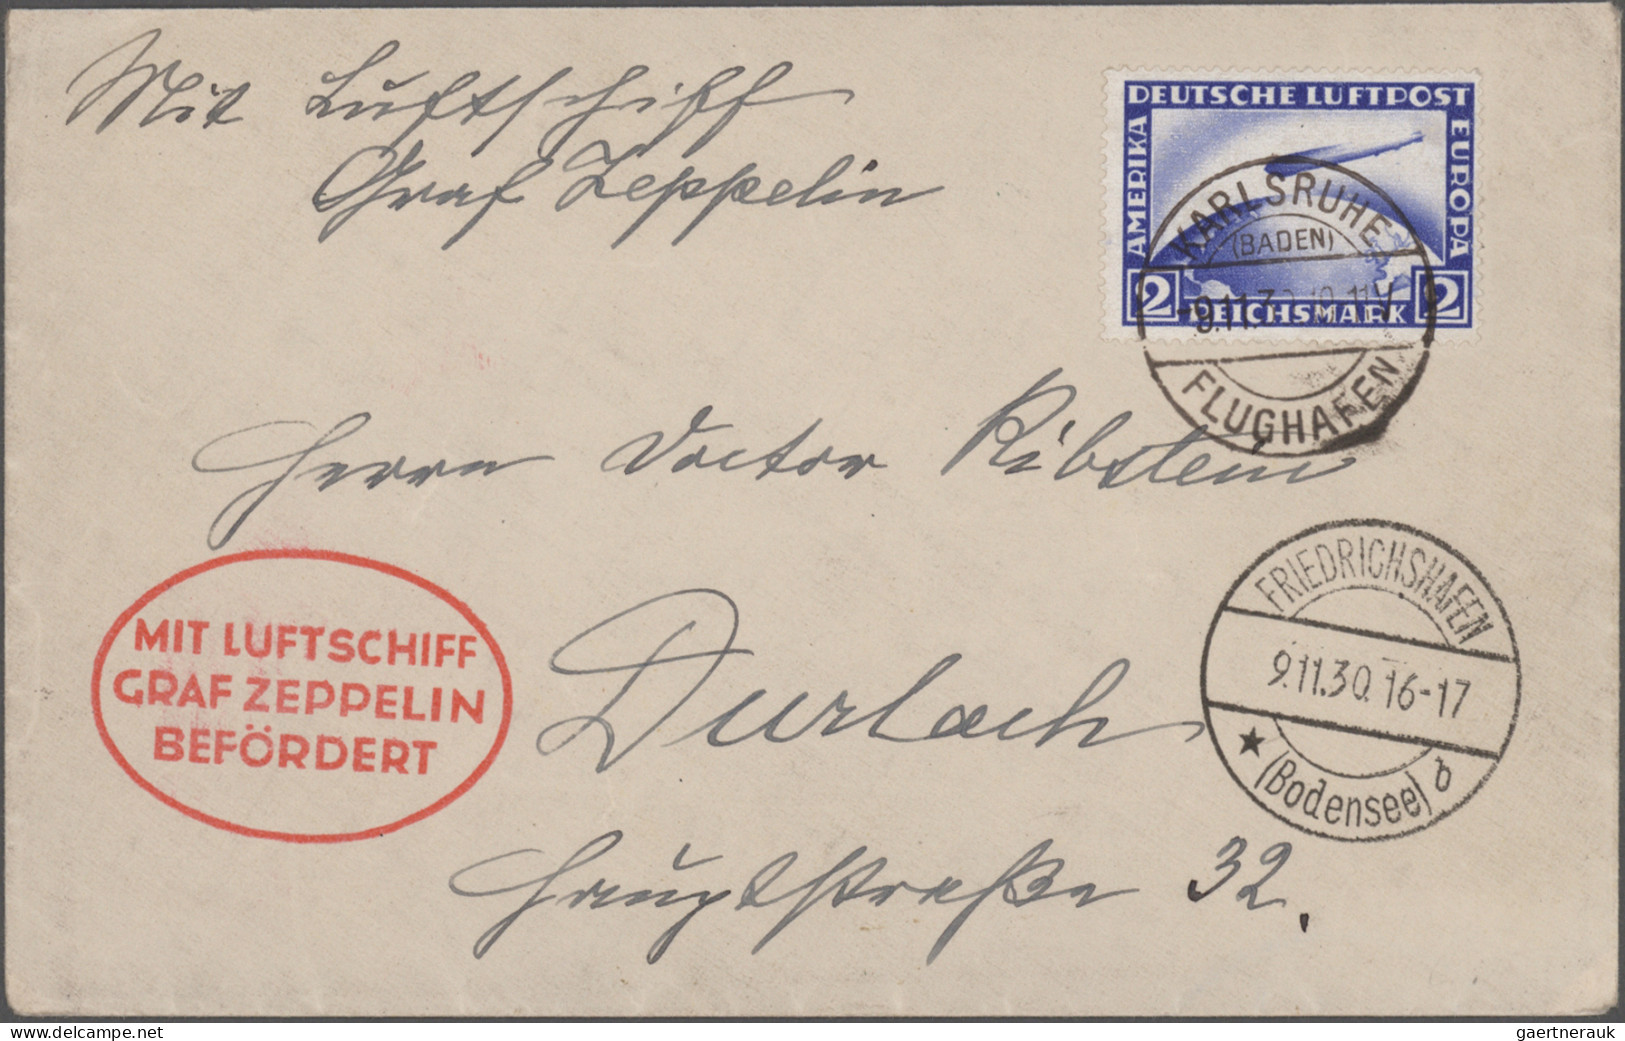 Mit Luftschiff
Graf Zeppelin
DEUTSCHE LUFTPOST
AMERIKA
EUROPA
2 REICHSMARK 2
KARLSRUHE
(BADEN)
-9.11.30.10-11V
FLUGHAFEN
Herrn Doctor Ribstein
MIT LUFTSCHIFF
GRAF ZEPPELIN
BEFÖRDERT
Durlach
FRIEDRICHSHAFEN
9.11.30. 16-17
★ (Bodensee) b
Hauptstraße 32.
www.delcampe.net
gaertnerauk